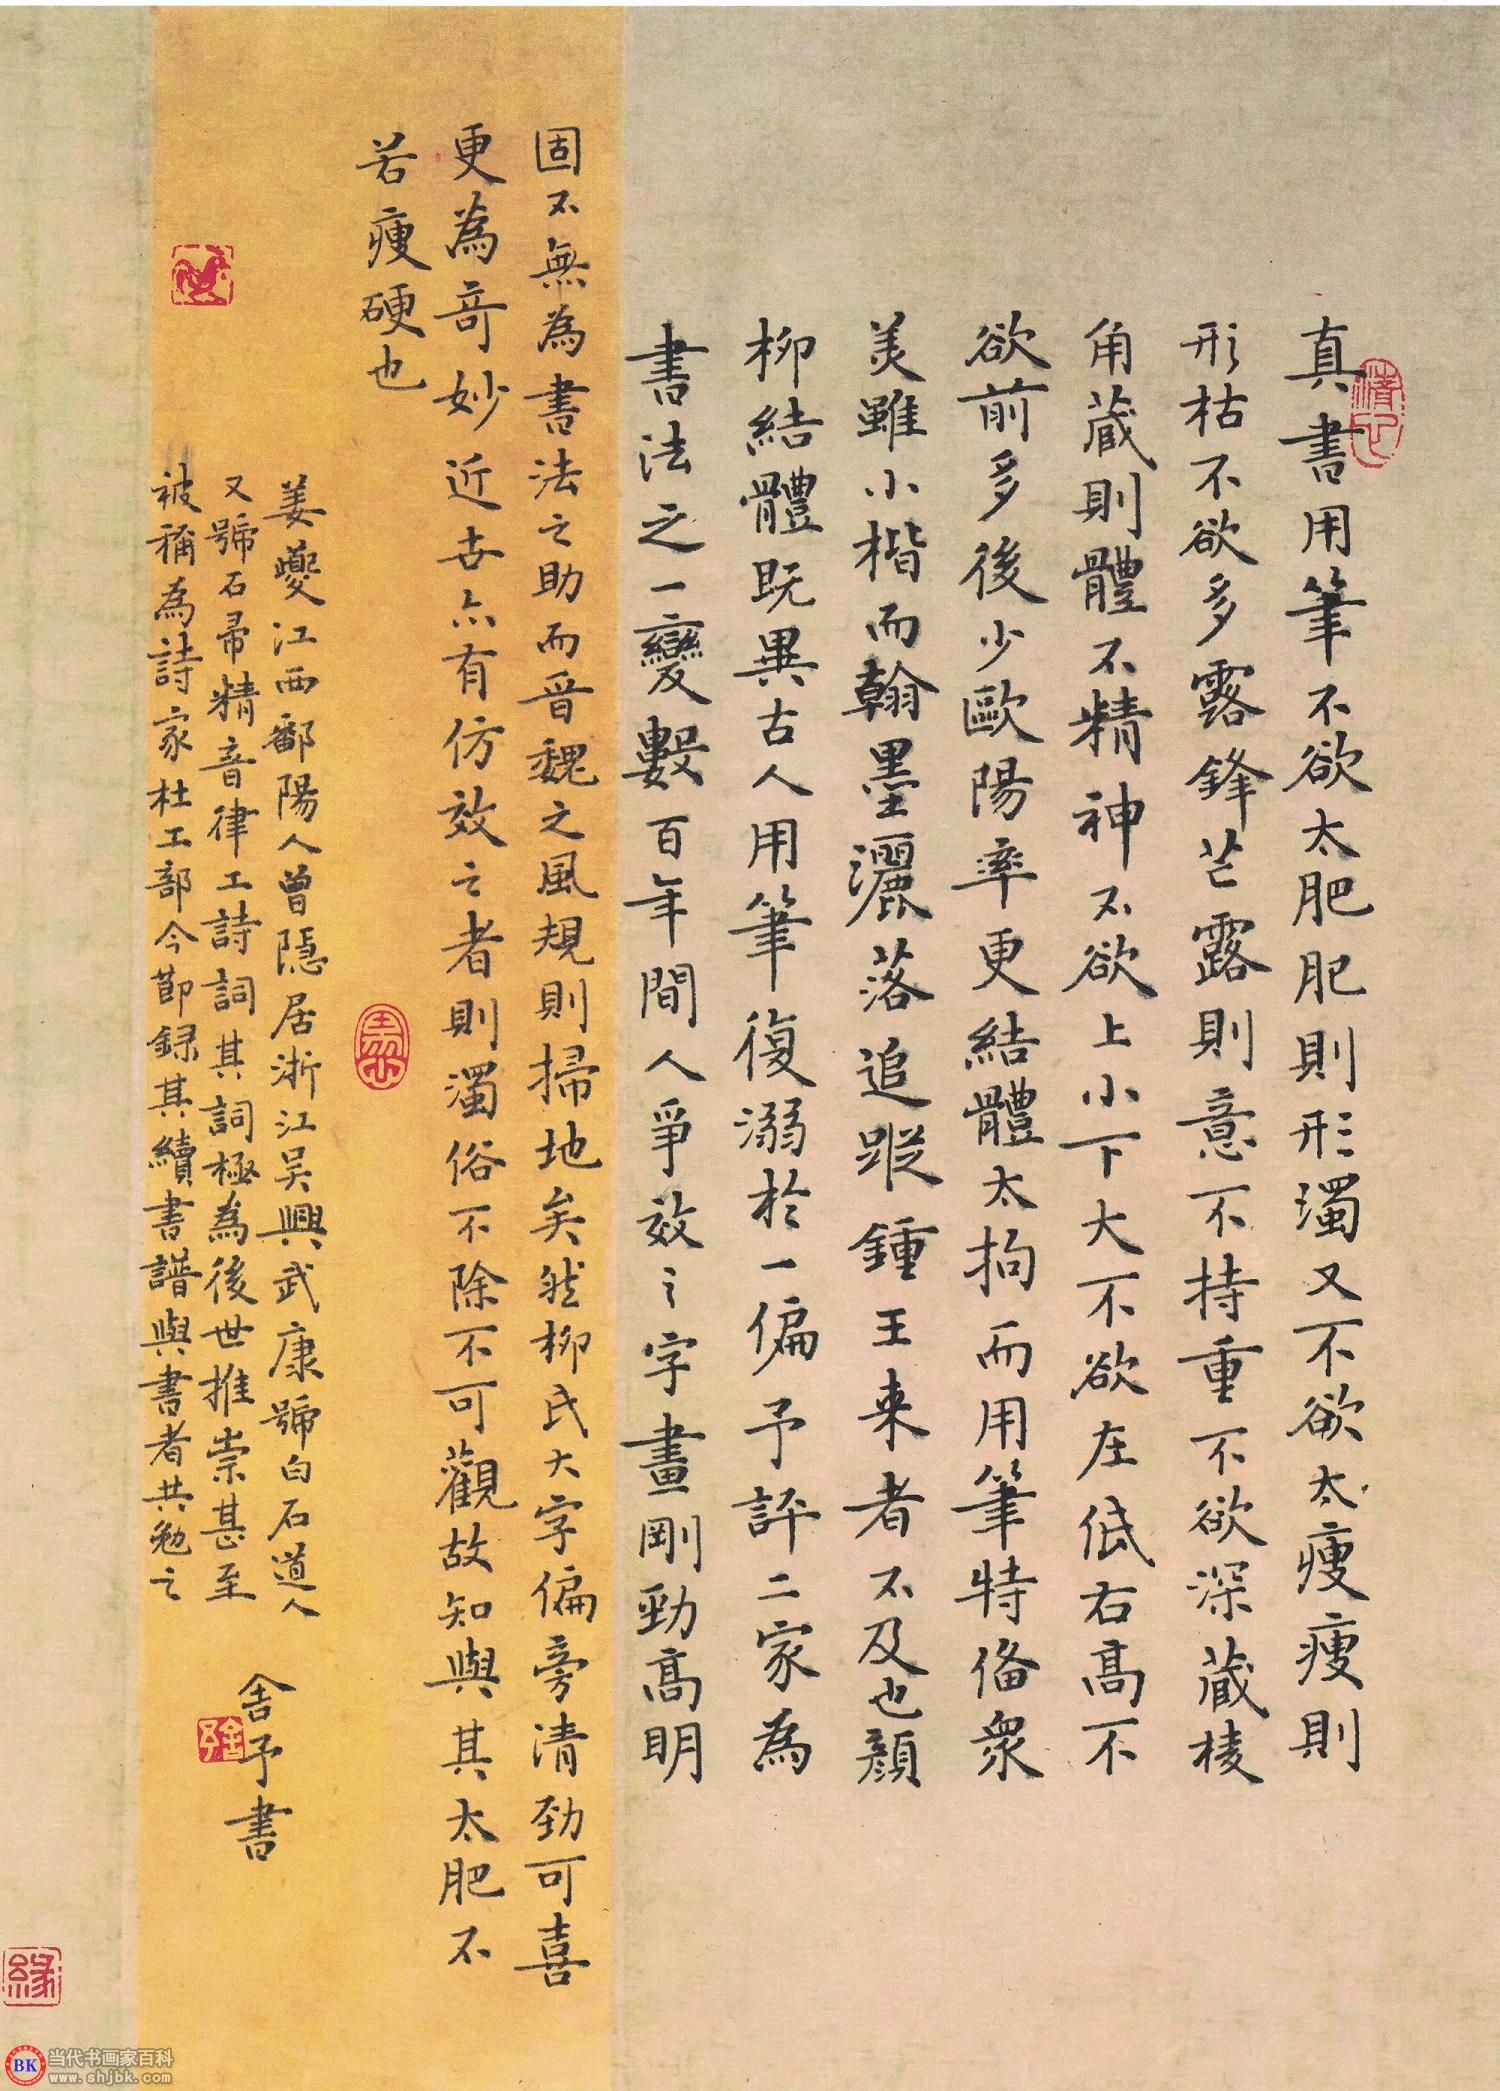 真書用筆不欲太肥肥則形濁又不欲太瘦瘦則
形枯不欲多露鋒芒露則意不持重不欲深蔵棱
角蔵則體不精神不欲上小下大不欲左低右高不
欲前多後少歐陽率更結體太拘而用筆特俻衆
美雖小楷而翰墨灑落追蹤鍾王来者不及也顔
柳結體既異古人用筆復溺於一偏予評二家為
書法之一變數百年間人爭效之字畫剛勁高明
固不無為書法之助而晋魏之風規則掃地矣然柳氏大字偏旁清勁可喜
更為奇妙近古亦有仿效之者則濁俗不除不可觀故知與其太肥不
若瘦硬也
姜夔江西鄱陽人曾隱居浙江吴興武康號白石道人
又號石帚精音律工詩詞其詞極為後世推崇甚至
被稱為詩家杜工部今節録其續書譜與書者共勉之
舍予書
緣
BK
当代书画家百科
www.shjbk.com